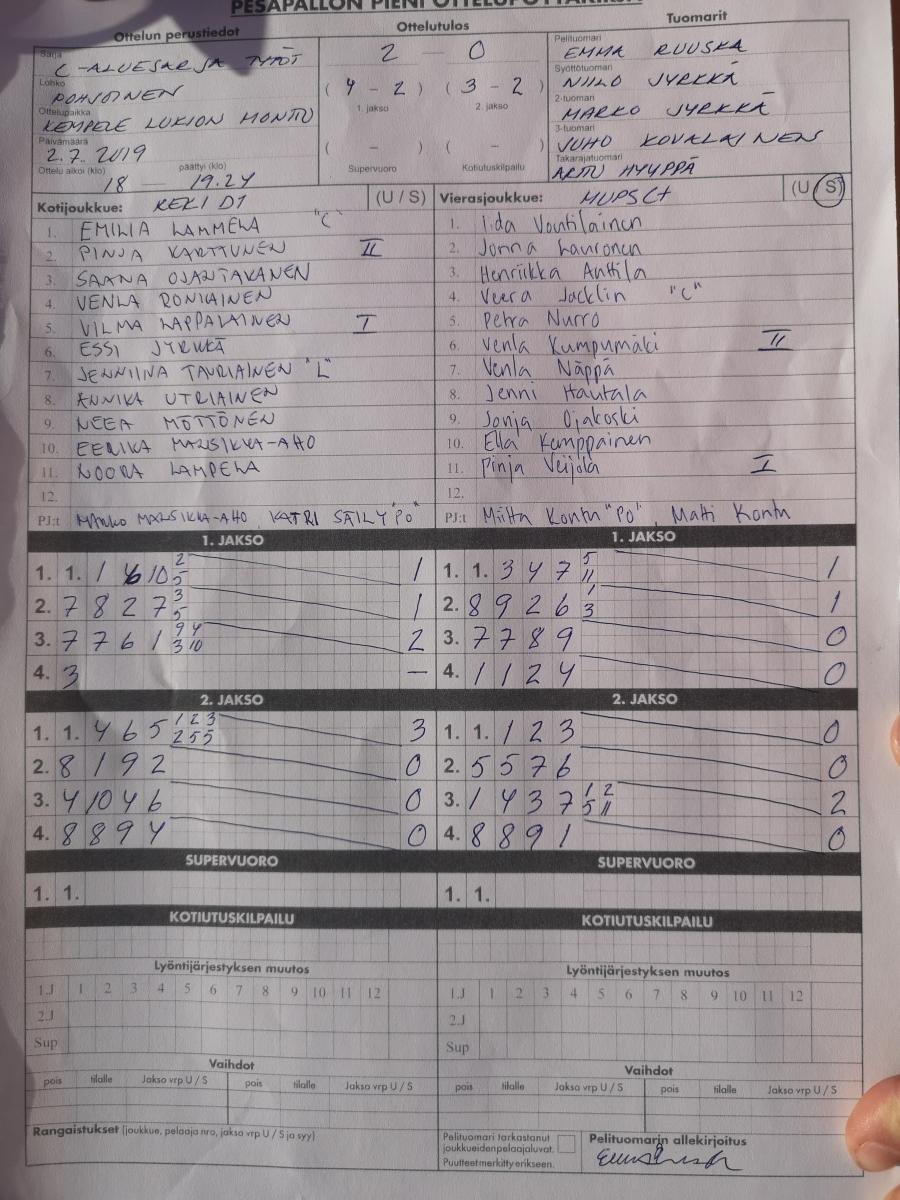 PESÄPALLON PIENI OTTELUPÖYTÄKIRJA
Ottelun perustiedot
Ottelutulos
Tuomarit
Sarja
C-ALUESARJA TYTÖT
2 — 0
Pelituomari
EMMA RUUSKA
Lohko
POHJOINEN
( 4 - 2 ) ( 3 - 2 )
1. jakso 2. jakso
Syöttötuomari
NIILO JYRKKÄ
Ottelupaikka
KEMPELE LUKION MONTTU
2-tuomari
MARKO JYRKKÄ
Päivämäärä
2.7.2019
( - ) ( - )
Supervuoro Kotiutuskilpailu
3-tuomari
JUHO KOVALAINEN
Ottelu alkoi (klo) päättyi (klo)
18 — 19.24
Takarajatuomari
ARTU HYYPPÄ
Kotijoukkue: KEKI D1 (U / S)
Vierasjoukkue: MUPS C+ (U / S)
1. EMILIA LAMMELA "C"
2. PINJA KARTTUNEN II
3. SAANA OJANTAKANEN
4. VENLA RONKAINEN
5. VILMA LAPPALAINEN I
6. ESSI JYRKKÄ
7. JENNIINA TAURIAINEN "L"
8. ANNIKA UTRIAINEN
9. NEEA MÖTTÖNEN
10. EERIKA MANSIKKA-AHO
11. NOORA LAMPELA
12.
PJ:t MARKO MANSIKKA-AHO, KATRI SÄILY "PO"
1. Iida Voutilainen
2. Jonna Lauronen
3. Henriikka Anttila
4. Veera Jacklin "C"
5. Petra Nurro
6. Venla Kumpumäki II
7. Venla Näppä
8. Jenni Hautala
9. Jonja Ojakoski
10. Ella Kemppainen
11. Pinja Veijola I
12.
PJ:t Miitta Kontu "PO", Matti Kontu
1. JAKSO
1. 1. 1 6 10 2 5 1
2. 7 8 2 7 3 5 1
3. 7 7 6 1 9 4 3 10 2
4. 3 —
1. JAKSO
1. 1. 3 4 7 5 11 1
2. 8 9 2 6 1 3 1
3. 7 7 8 9 0
4. 1 1 2 4 0
2. JAKSO
1. 1. 4 6 5 1 2 3 2 5 5 3
2. 8 1 9 2 0
3. 4 10 4 6 0
4. 8 8 9 4 0
2. JAKSO
1. 1. 1 2 3 0
2. 5 5 7 6 0
3. 1 4 3 7 1 2 5 11 2
4. 8 8 9 1 0
SUPERVUORO
1. 1.
SUPERVUORO
1. 1.
KOTIUTUSKILPAILU
KOTIUTUSKILPAILU
Lyöntijärjestyksen muutos
1.J 1 2 3 4 5 6 7 8 9 10 11 12
2.J
Sup
Lyöntijärjestyksen muutos
1.J 1 2 3 4 5 6 7 8 9 10 11 12
2.J
Sup
Vaihdot
pois tilalle Jakso vrp U / S pois tilalle Jakso vrp U / S
Vaihdot
pois tilalle Jakso vrp U / S pois tilalle Jakso vrp U / S
Rangaistukset (joukkue, pelaaja nro, jakso vrp U / S ja syy)
Pelituomari tarkastanut
joukkueiden pelaajaluvat.
Puutteet merkitty erikseen.
Pelituomarin allekirjoitus